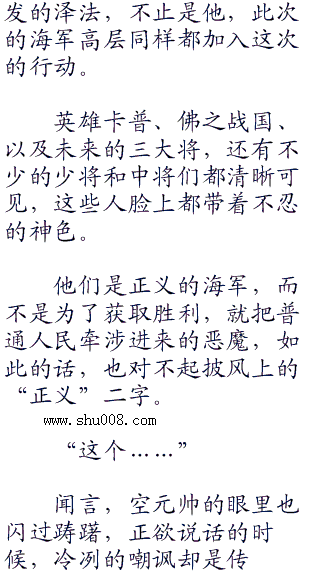 发的泽法，不止是他，此次
的海军高层同样都加入这次
的行动。
英雄卡普、佛之战国、
以及未来的三大将，还有不
少的少将和中将们都清晰可
见，这些人脸上都带着不忍
的神色。
他们是正义的海军，而
不是为了获取胜利，就把普
通人民牵涉进来的恶魔，如
此的话，也对不起披风上的
“正义”二字。
www.shu008.com
“这个……”
闻言，空元帅的眼里也
闪过踌躇，正欲说话的时
候，冷冽的嘲讽却是传